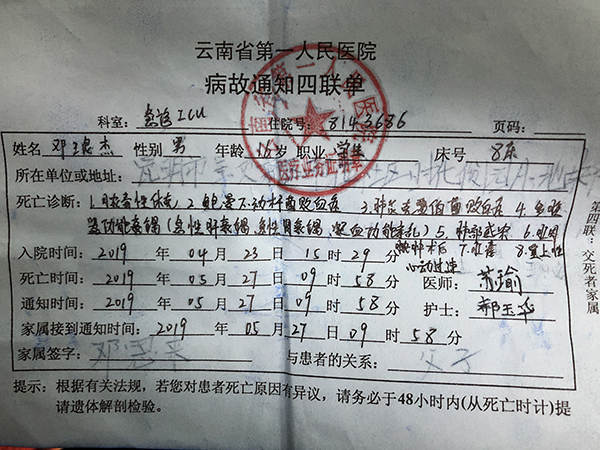 云南省第一人民医院
病故通知四联单
科室：急诊ICU 住院号：8143686 页码：
姓名 邓 杰 性别 男 年龄 岁 职业 学生 床号 8床
所在单位或地址：昆明市
死亡诊断：1.脓毒性休克 2.鲍曼不动杆菌败血症 3.肺炎克雷伯菌败血症 4.多脏
器功能衰竭（急性肝衰竭、急性肾衰竭、凝血功能紊乱）5.肺部感染 6.
术后 7. 8.室上性
心动过速
入院时间：2019 年 04 月 23 日 15 时 29 分
死亡时间：2019 年 05 月 27 日 09 时 58 分 医师：苏瑜
通知时间：2019 年 05 月 27 日 09 时 58 分 护士：郝玉华
家属接到通知时间：2019 年 05 月 27 日 09 时 58 分
家属签字：邓 与患者的关系：父子
提示：根据有关法规，若您对患者死亡原因有异议，请务必于48小时内(从死亡时计)提
请遗体解剖检验。
第四联：交死者家属
云南省第一人民医院
医疗业务证明章